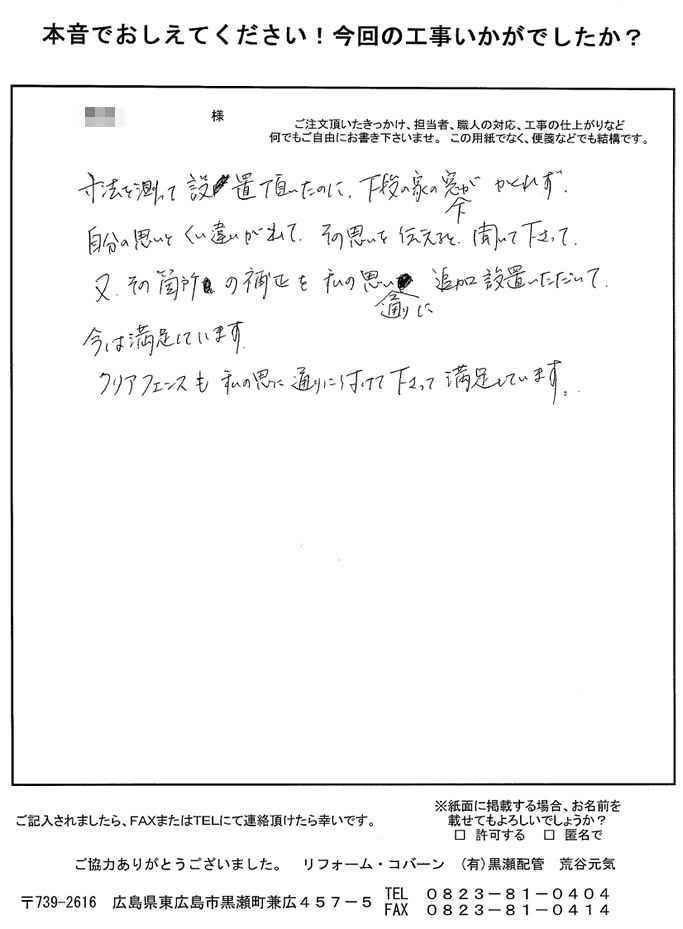 本音でおしえてください！今回の工事いかがでしたか？
様
ご注文頂いたきっかけ、担当者、職人の対応、工事の仕上がりなど
何でもご自由にお書き下さいませ。 この用紙でなく、便箋などでも結構です。
寸法を測って 設置頂いたのに、下段の家の窓が かくれず、
下
自分の思いと くい違いが出て、その思いを 伝えると、聞いて下さって、
又、その箇所の補正を 私の思い 追加設置いただいて、
通りに
今は満足しています。
クリアフェンスも 私の思い通りに付けて下さって 満足しています。
ご記入されましたら、FAXまたはTELにて連絡頂けたら幸いです。
※紙面に掲載する場合、お名前を
載せてもよろしいでしょうか？
□ 許可する □ 匿名で
ご協力ありがとうございました。 リフォーム・コバーン （有）黒瀬配管 荒谷元気
〒739-2616 広島県東広島市黒瀬町兼広４５７－５
TEL ０８２３－８１－０４０４
FAX ０８２３－８１－０４１４